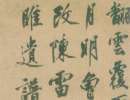 翻雲覆
月明
改陳雷
雎遺譜